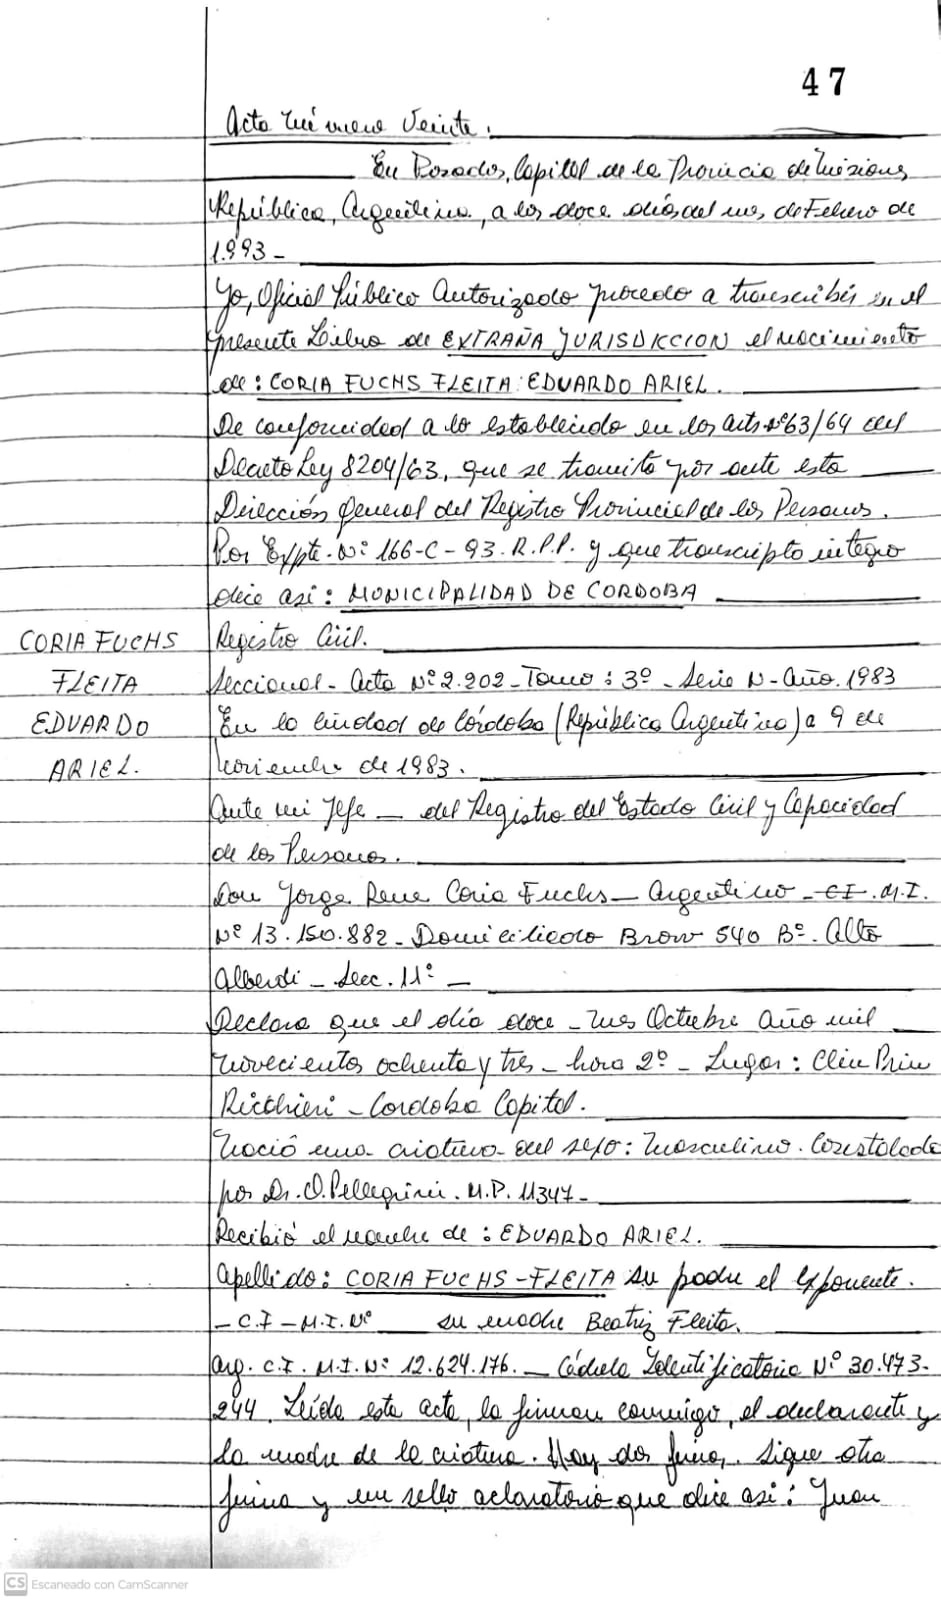 47
Acta número Veinte.
En Posadas, Capital de la Provincia de Misiones
República, Argentina, a los doce días del mes, de Febrero de
1.993-
Yo, Oficial Público Autorizado procedo a transcribir en el
presente Libro de EXTRAÑA JURISDICCION el nacimiento
de: CORIA FUCHS FLEITA: EDUARDO ARIEL.
De conformidad a lo establecido en los arts. Nº63/64 del
Decreto Ley 8204/63, que se tramita por ante esta
Dirección General del Registro Provincial de las Personas.
Por Expte. Nº 166-C-93. R.P.P. y que transcripto integro
dice asi: MUNICIPALIDAD DE CORDOBA
CORIA FUCHS
FLEITA
EDUARDO
ARIEL.
Registro Civil.
Seccional- Acta Nº2.202-Tomo: 3º-Serie N-Año.1983
En la ciudad de Córdoba (República Argentina) a 9 de
Noviembre de 1983.
Ante mi Jefe — del Registro del Estado Civil y Capacidad
de las Personas.
Don Jorge Rene Coria Fuchs- Argentino - CI. M.I.
Nº 13.150.882- Domiciliado Brow 540 Bº. Alto
Alberdi - Secc. 11º -
Declara que el día doce - mes Octubre año mil
novecientos ochenta y tres - hora 2º - Lugar: Clin Priv
Ricchieri - Cordoba Capital.
Nació una criatura del sexo: Masculino. Constatado
por Dr. O. Pellegrini. M.P. 11347-
Recibió el nombre de: EDUARDO ARIEL.
Apellido: CORIA FUCHS-FLEITA su padre el exponente.
- C.I - M.I. Nº su madre Beatriz Fleita.
Arg. C.I. M.I. Nº 12.624.176. - Cédula Identificatoria Nº 30.473-
244. Leída esta acta, la firman conmigo, el declarante y
la madre de la criatura. Hay dos firmas. Sigue otra
firma y un sello aclaratorio que dice asi: Juan
CS Escaneado con CamScanner